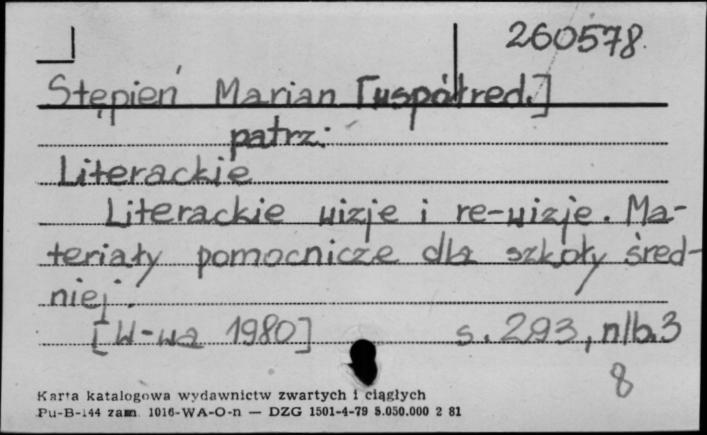 260578
Stępień Marian [współred.]
patrz:
Literackie
Literackie wizje i re-wizje. Ma-
teriały pomocnicze dla szkoły śred-
niej.
[W-wa 1980] s. 293, nlb. 3
8
Karta katalogowa wydawnictw zwartych i ciągłych
Pu-B-144 zam. 1016-WA-O-n — DZG 1501-4-79 5.050.000 2 81